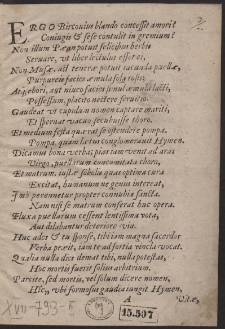 ERGO Bircouius blando concessit amori?
Coniugis & sese contulit in gremium?
Non illum Pæan potuit felicibus herbis
Seruare, vt liber ictulus esset ei,
Non Musæ, aut teneræ potuit iucunda puellæ,
Purpureis facies æmula rosis,
At gebori, aut niueo facies simul æmula lacti,
Possessum placito nectere seruitio.
Gaudeat vt cupidum nomen captare mariti,
Et sternat vacuo secubuisse thoro.
Et medium festa qua ratis ostendere pompa.
Pompa, quam lætus conglomerauit Hymen?
Dicamus bona verba; piastam venit ad aras
Virgo, puellarum concomitata choro,
Et matrum. iustæ sobolis quas optima cura
Excitat, humanum ne genus intereat,
Imò perennetur propter connubia sancta.
Nam nisi se matrem conferat huc opera.
Fluxa puellarum cessent lentissima vota,
Aut dilabantur deteriore via.
Huc ades & tu sponse, tibi iam magna sacerdos
Verba præit, iam te ad fortia vincla vocat.
Qualia nulla dies demat tibi, nulla potestas,
Hoc mortis fuerit solius arbitrium.
Parcite, sed mortis, vel solum dicere nomen,
Hîc, vbi formosus gaudia iungit Hymen,
A
Vitæ,
XVII-793-II
15.507